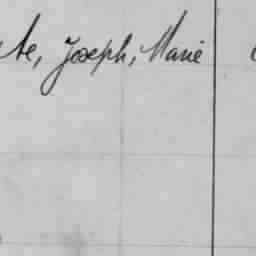 te, Joseph, Marie